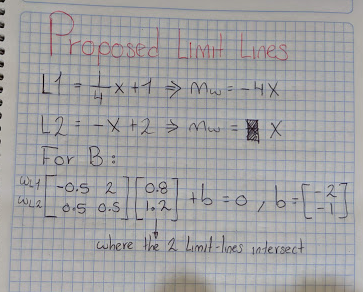 Proposed Limit Lines
L1 = 1/4 x + 1 ⇒ mw = -4x
L2 = -x + 2 ⇒ mw = x
For B:
WL1 [-0.5 2] [0.8]
WL2 [0.5 0.5] [1.2] + b = 0, b = [-2 -1]
where the 2 Limit-lines intersect